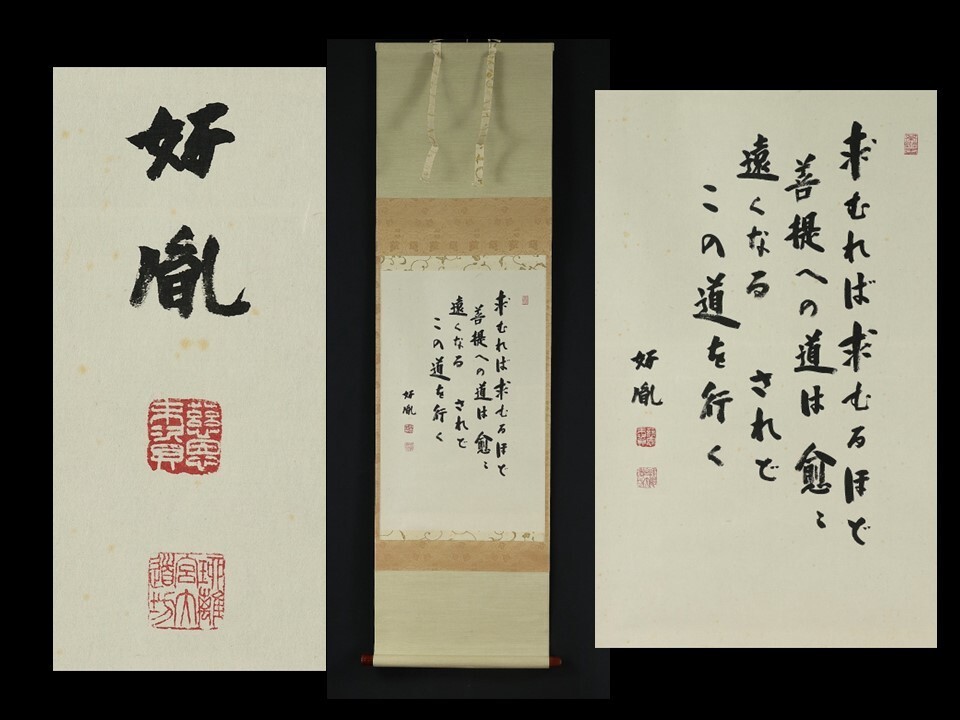 好胤
慈恩
末資
求むれば求むるほど
菩提への道は愈〻
遠くなる されど
この道を行く
好胤
求むれば求むるほど
菩提への道は愈〻
遠くなる されど
この道を行く
好胤